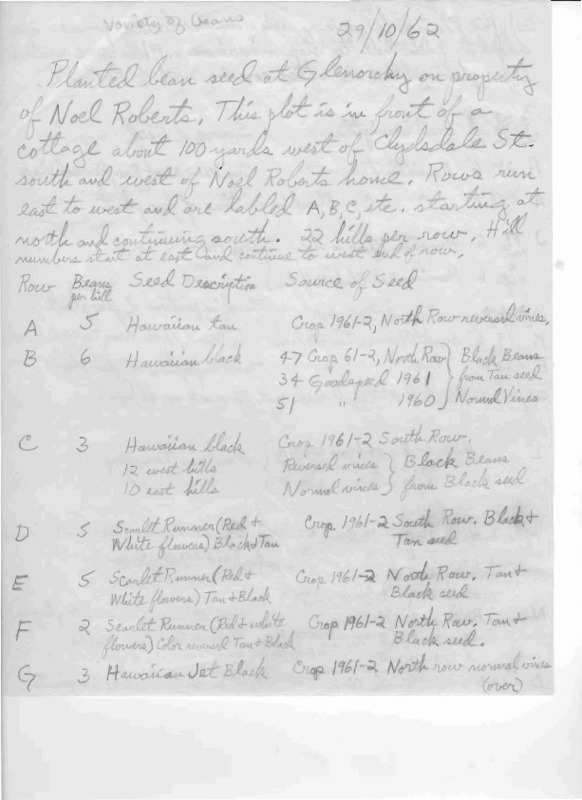 Variety of beans
29/10/62
Planted bean seed at Glenorchy on property
of Noel Roberts. This plot is in front of a
cottage about 100 yards west of Clydsdale St.
south and west of Noel Roberts home. Rows run
east to west and are labled A, B, C, etc. starting at
north and continuing south. 22 hills per row. Hill
numbers start at east and continue to west end of row.
Row Beans per hill Seed Description Source of Seed
A 5 Hawaiian tan Crop 1961-2, North Row reversed vines.
B 6 Hawaiian black 47 Crop 61-2, North Row } Black Beans
34 Goodspeed 1961 } from Tan seed
51 " 1960 } Normal Vines
C 3 Hawaiian black Crop 1961-2 South Row.
12 west hills Reversed vines } Black Beans
10 east hills Normal vines } from Black seed
D 5 Scarlet Runner (Red + Crop 1961-2 South Row. Black +
White flowers) Black + Tan Tan seed
E 5 Scarlet Runner (Red + Crop 1961-2 North Row. Tan +
White flowers) Tan + Black Black seed
F 2 Scarlet Runner (Red + white Crop 1961-2 North Row. Tan +
flowers) Color reversed Tan + Black Black seed.
G 3 Hawaiian Jet Black Crop 1961-2 North row normal vines
(over)